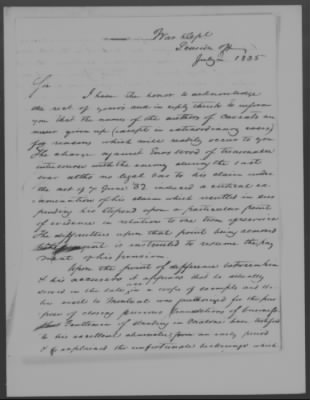 War Dept
Pension Off
July 1835
Sir
I have the honor to acknowledge
the rect of yours and in reply thereto to inform
you that the names of the authors of Caveats are
never given up (except in extraordinary cases)
for reasons which will readily occur to you
The charge against Enos Wood of treasonable
intercourse with the enemy during the last
war altho no legal bar to his claim under
the act of 7 June 32 induced a critical ex-
amination of his claim which resulted in sus
pending his stipend upon a particular point
of evidence in relation to the term of service
The difficulties upon that point being removed
is instructed to resume the pay
ment of his pension
Upon the point of difference between him
& his accusers it appears that he actually
served in the late war in a corps of exempts and th
visit to Montreal was for the pur
pose of closing previous transactions of business
Gentlemen of standing in have testified
to his excellent character from an early period
& explained the unfortunate which